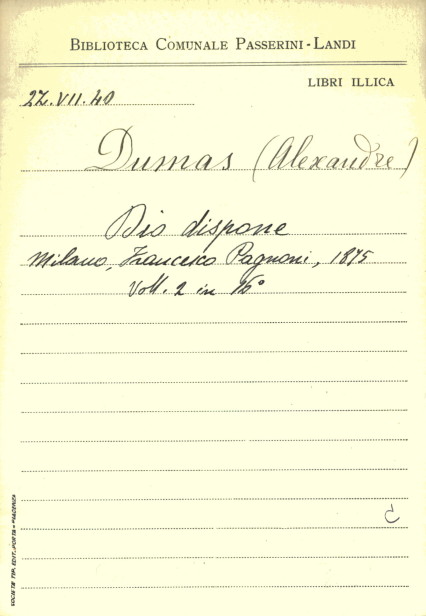 BIBLIOTECA COMUNALE PASSERINI-LANDI
LIBRI ILLICA
22.VII.40
Dumas (Alexandre)
Dio dispone
Milano, Francesco Pagnoni, 1875
Voll. 2 in 16°